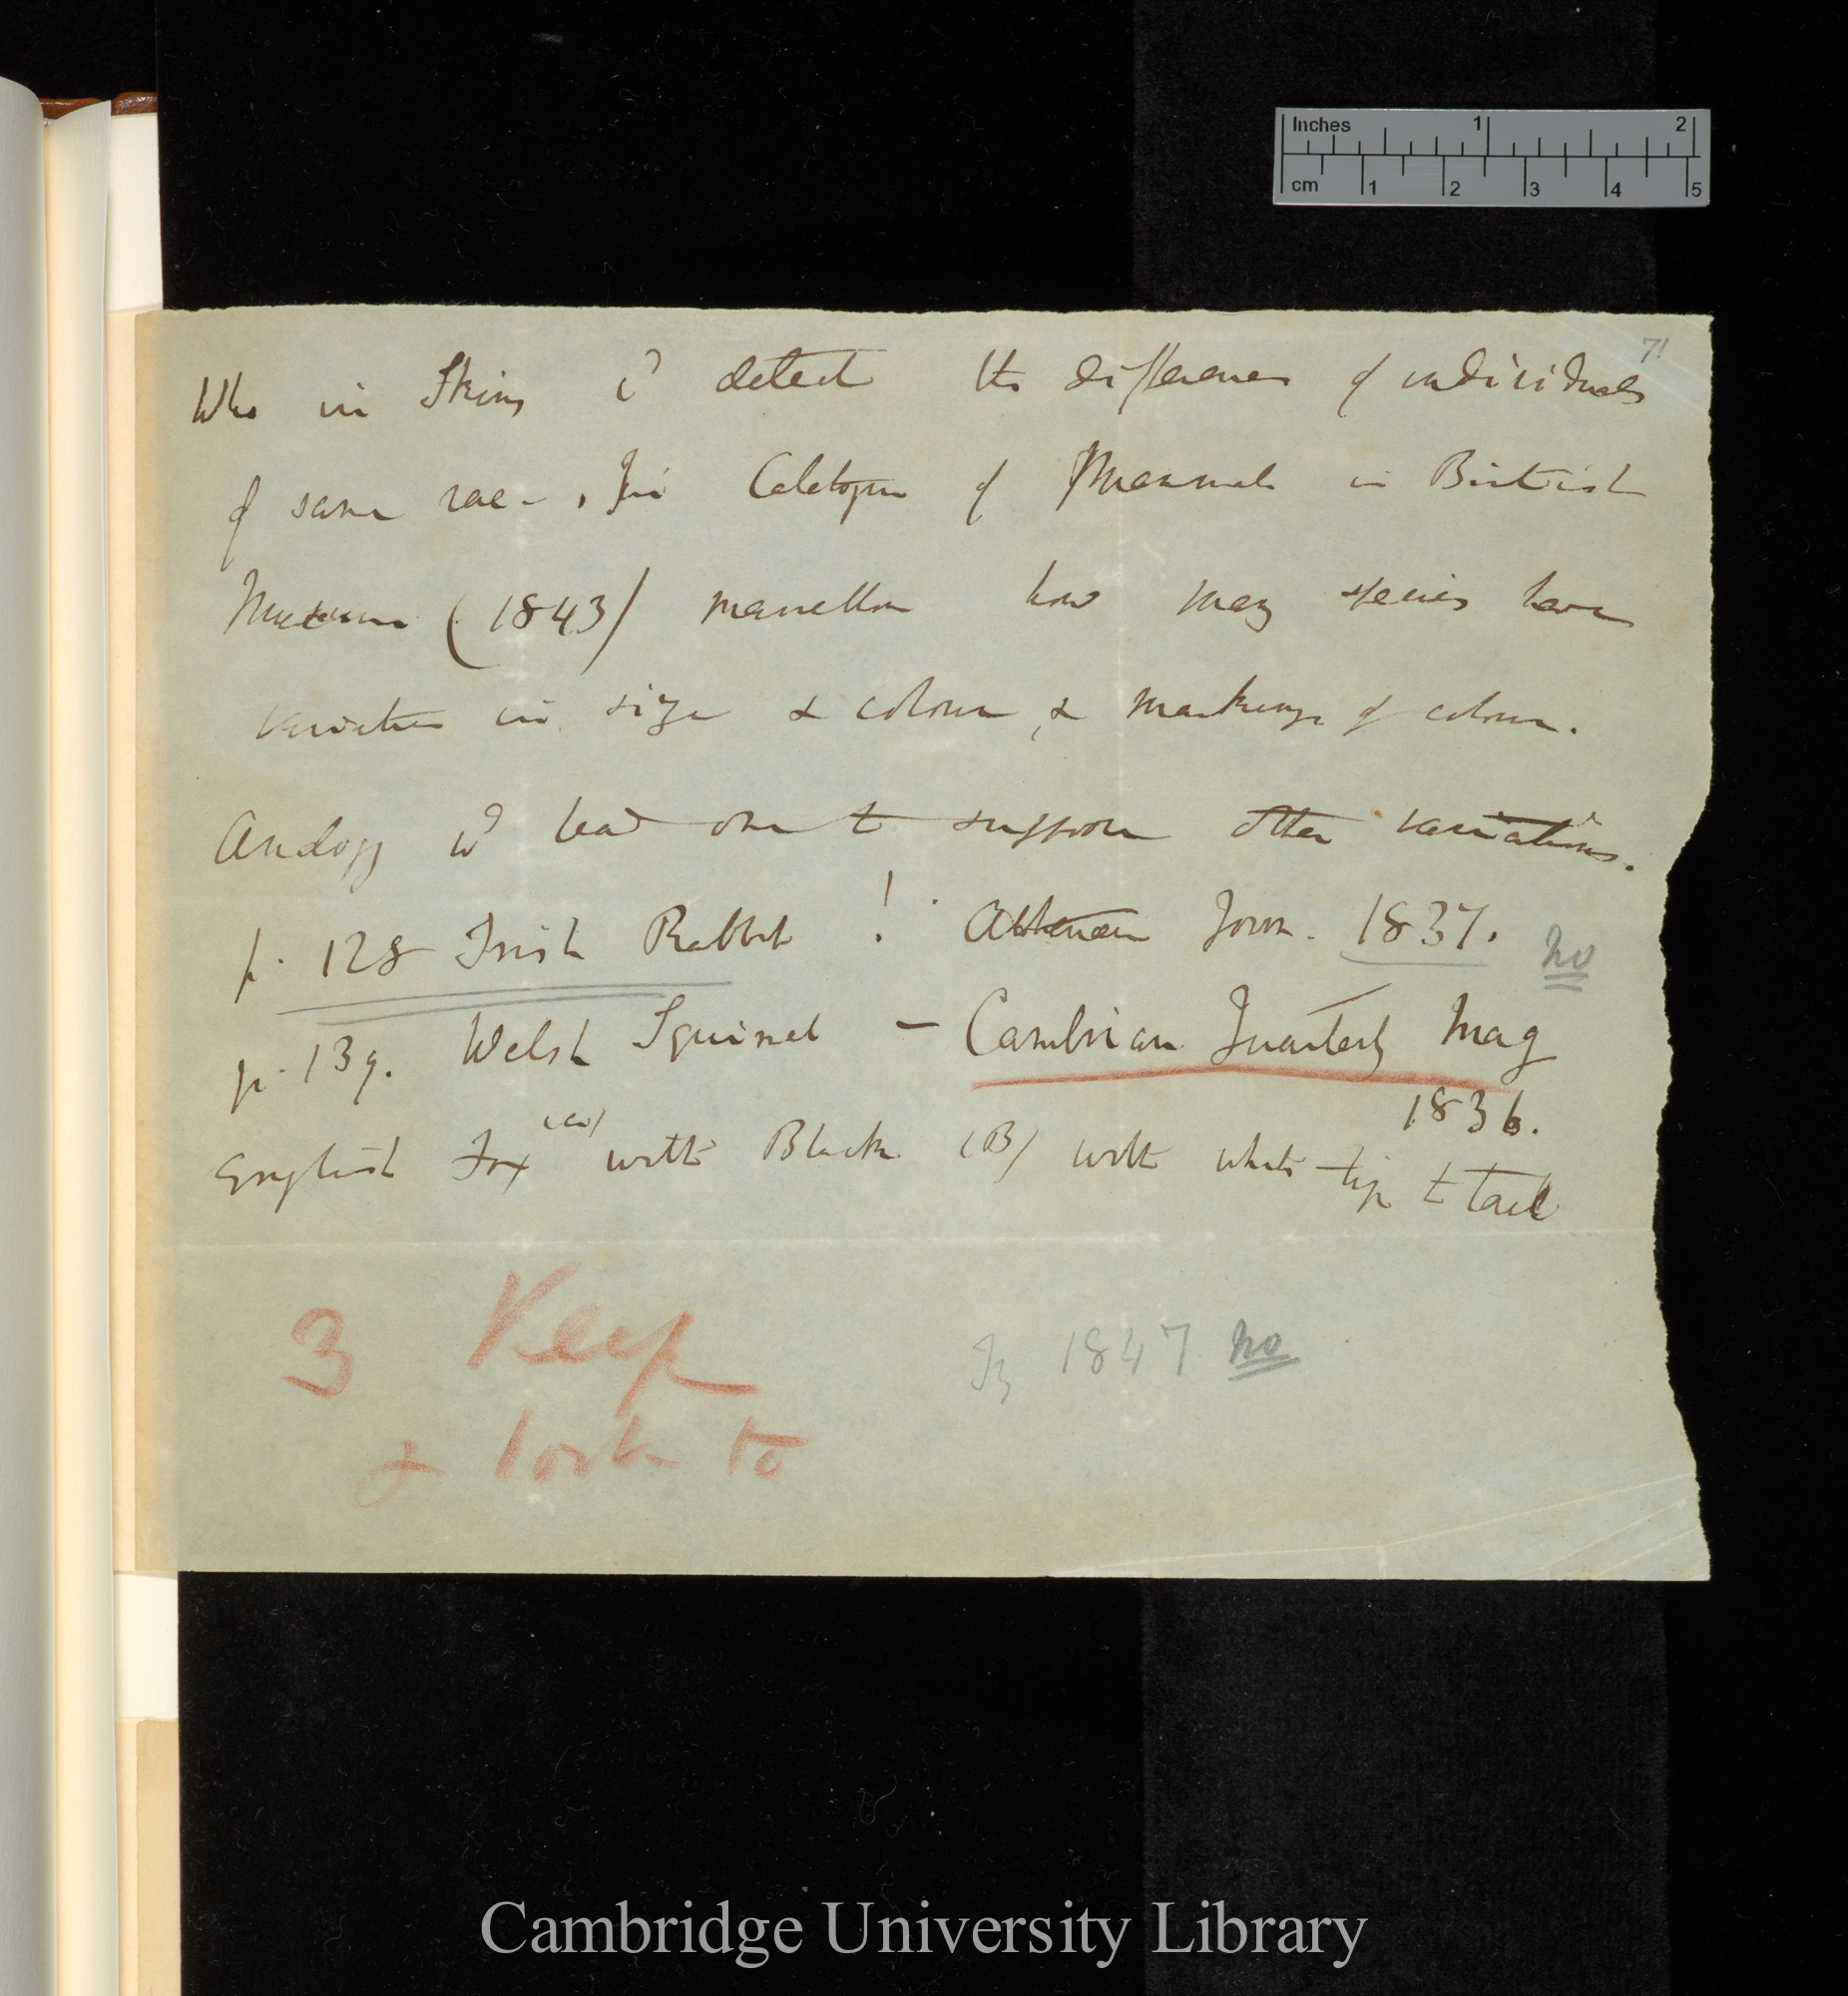 Inches 1 2
cm 1 2 3 4 5
71
Who in Skins cd detect the differences of individuals
of same race, In Catalogue of Mammals in British
Museum (1843) marvellous how many species have
varieties in size & colour, & markings of colour.
Analogy wd lead one to suppose other variations.
p. 128 Irish Rabbit ! Athenæum Journ. 1837. no
p. 139. Welsh Squirrel – Cambrian Quarterly Mag
1836.
English Fox (a) with Black (B) with white tip to tail
3 Keep
& look to
1847 no
Cambridge University Library